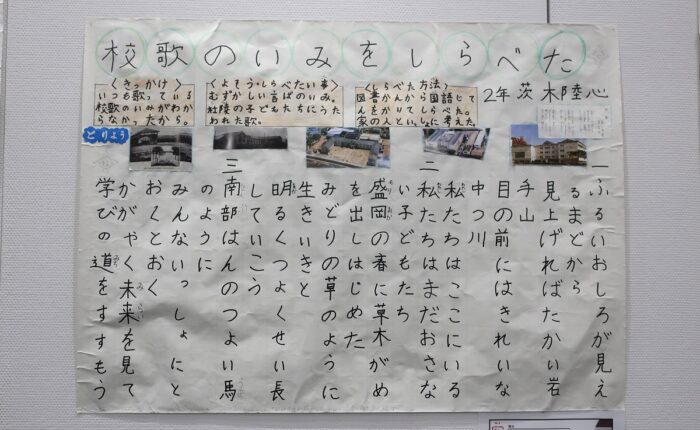 校歌のいみをしらべた
〈きっかけ〉
いつも歌っている
校歌のいみがわか
らなかったから。
〈よそう・しらべたい事〉
むずかしい言ばのいみ。
杜陵の子どもたちにうた
われた歌。
〈しらべた方法〉
図書かんから国語じて
んをかりてしらべた。
家の人といっしょに考えた。
2年 茨木陸心
とりょう
一 ふるいおしろが見え
るまどから
見上げればたかい岩
手山
目の前にはきれいな
中つ川
二 私たちはここにいる
私たちはまだおさな
い子どもたち
盛岡の春に草木がめ
を出しはじめた
みどりの草のように
生きいきと
明るくつよくせい長
していこう
三 南部はんのつよい馬
のように
みんないっしょにと
おくとおく
かがやく未来を見て
学びの道をすすもう